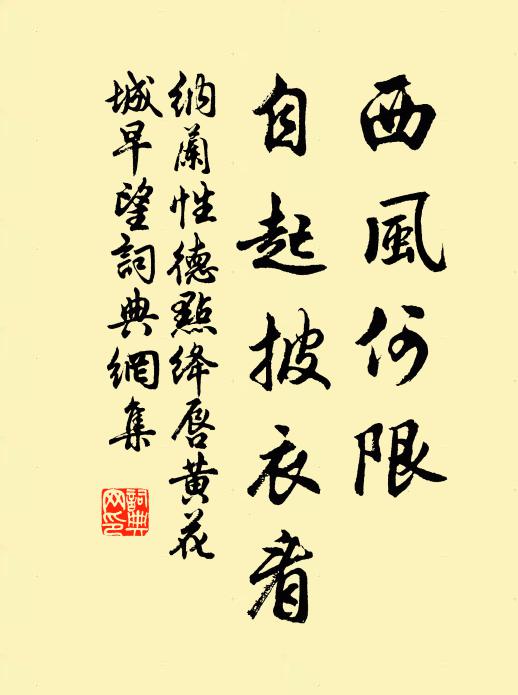 西風何限
自起披衣看
納蘭性德點絳唇黃花
城早望詞典網集
詞典
网印